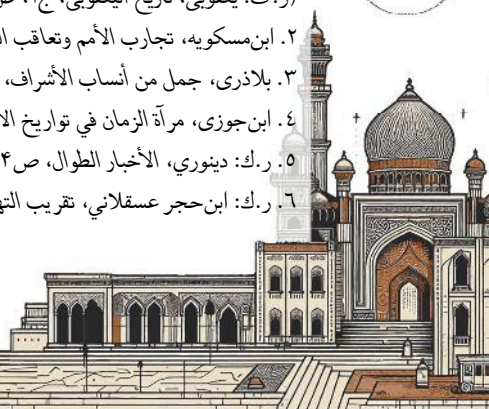 (ر.ک: یعقوبی، تاریخ الیعقوبی، ج
۲. ابن‌مسکویه، تجارب الأمم وتعاقب
۳. بلاذری، جمل من أنساب الأشراف،
٤. ابن‌جوزی، مرآة الزمان في تواریخ
۵. ر.ک: دینوري، الأخبار الطوال، ص۴
۶. ر.ک: ابن‌حجر عسقلاني، تقریب